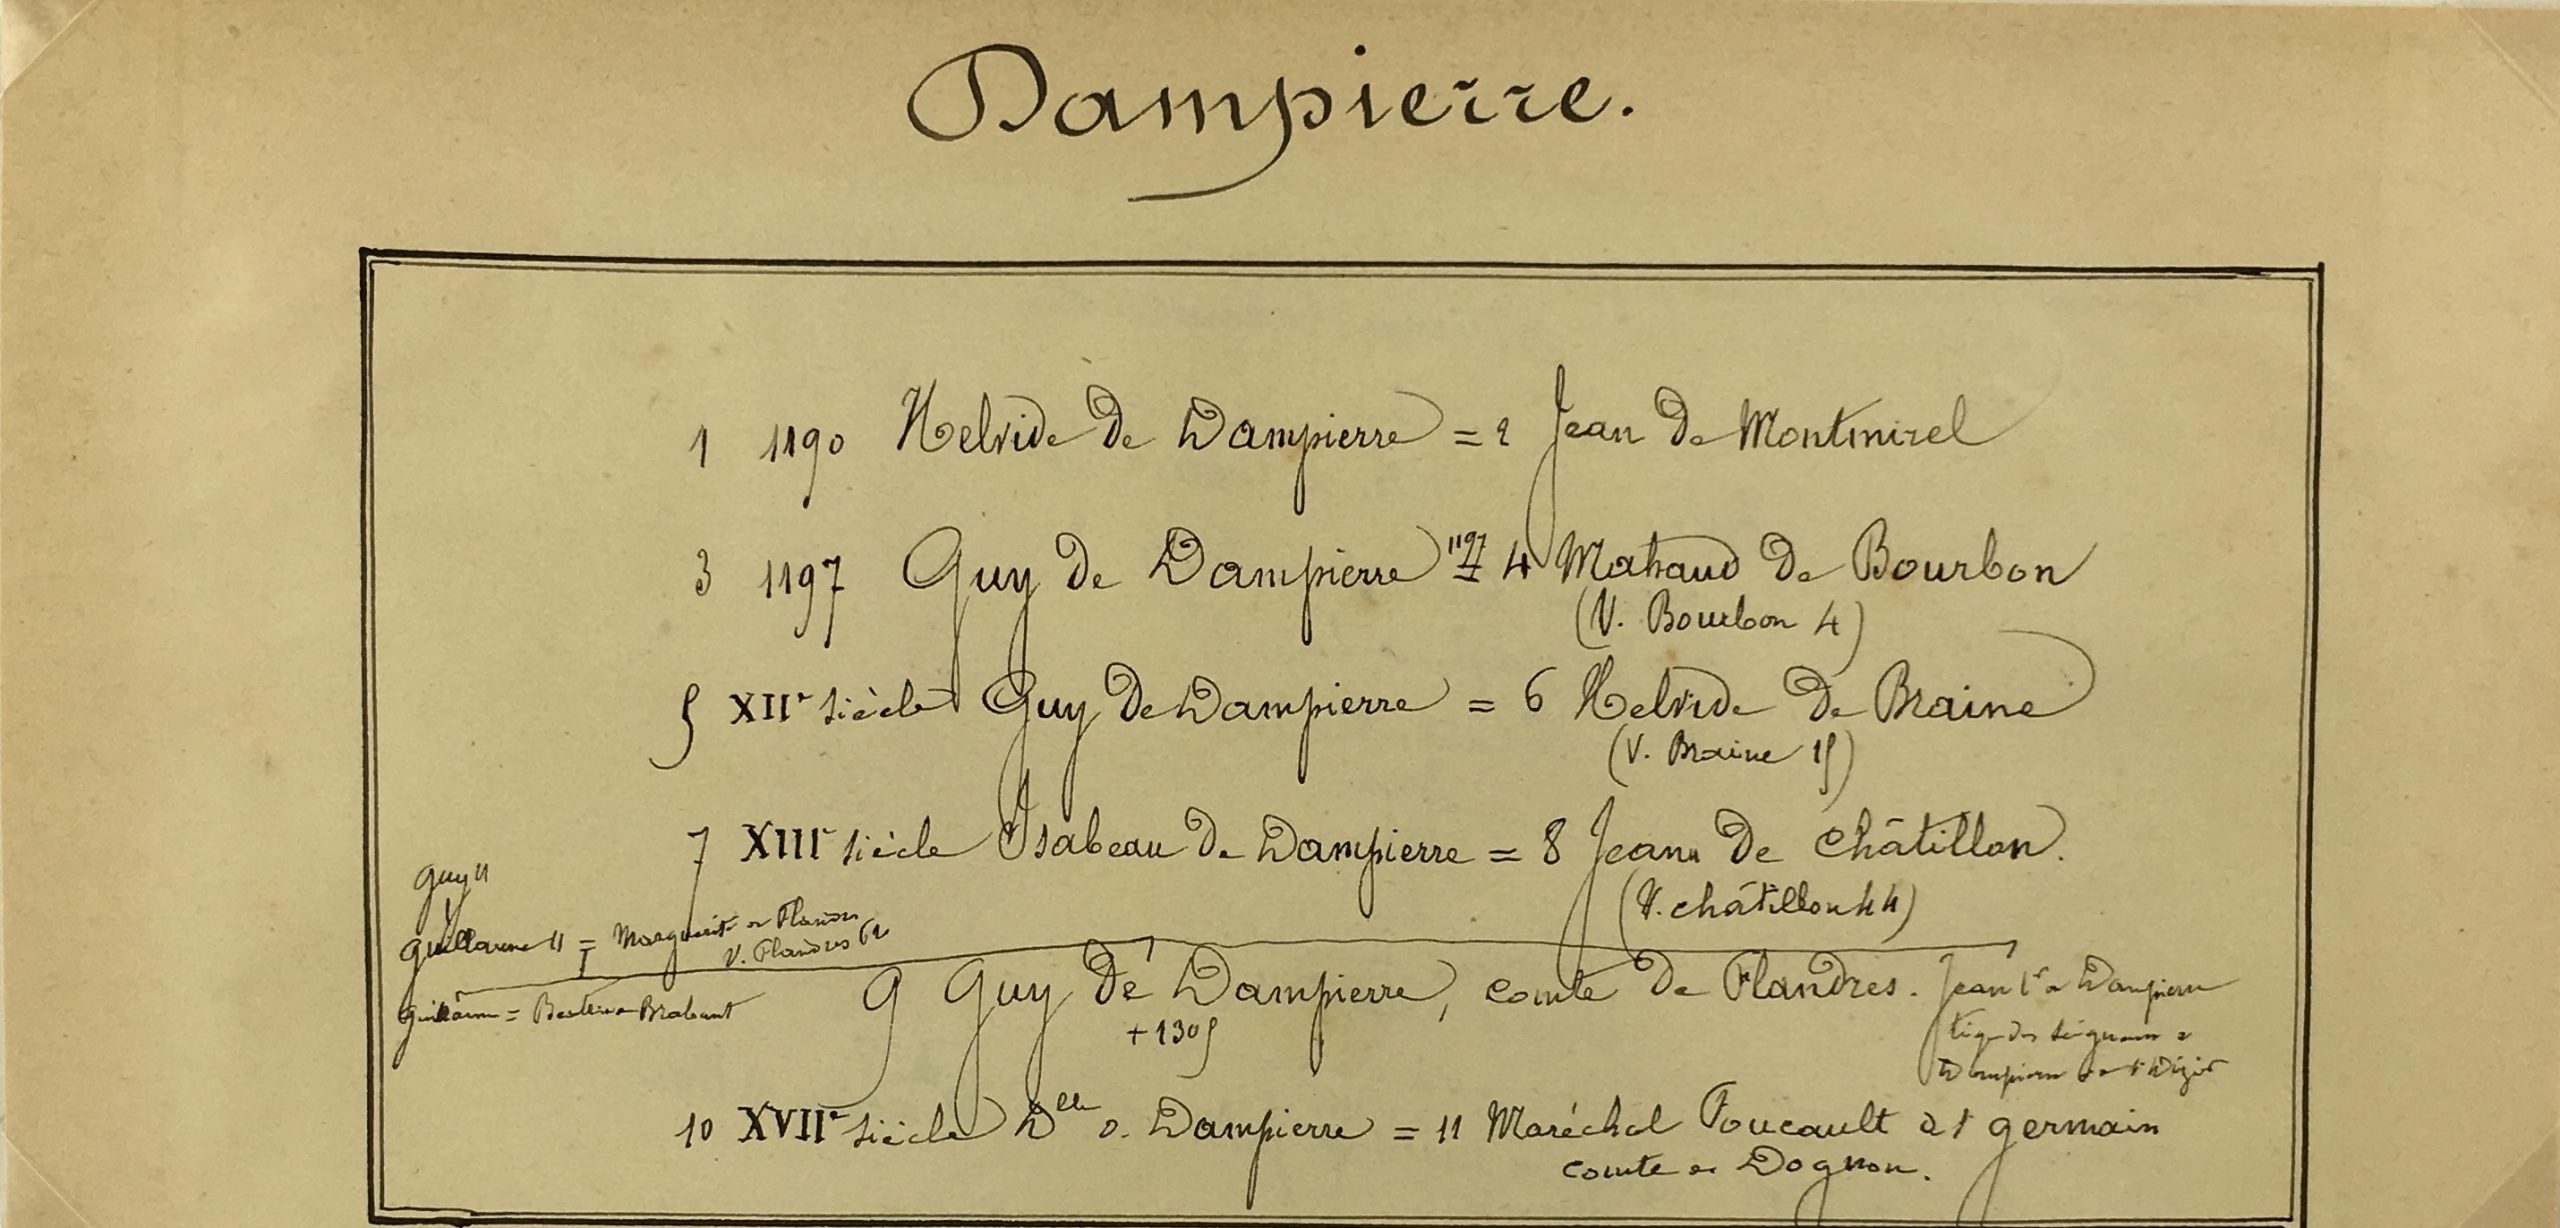 Dampierre.
1 1190 Helvide de Dampierre = 2 Jean de Montmirel
3 1197 Guy de Dampierre 1197 = 4 Mahaud de Bourbon
(V. Bourbon 4)
5 XIIe siècle Guy de Dampierre = 6 Helvide de Braine
(V. Braine 15)
7 XIIIe siècle Isabeau de Dampierre = 8 Jean de Châtillon.
(V. Châtillon 44)
Guy II
Guillaume II = Marguerite de Flandres
V. Flandres 62
Guillaume = Béatrix de Brabant
9 Guy de Dampierre, comte de Flandres. Jean 1r de Dampierre
+ 1305
tige des seigneurs de
Dampierre et de St Dizier
10 XVIIe siècle Delle d. Dampierre = 11 Maréchal Foucault de St germain
comte de Dognon.